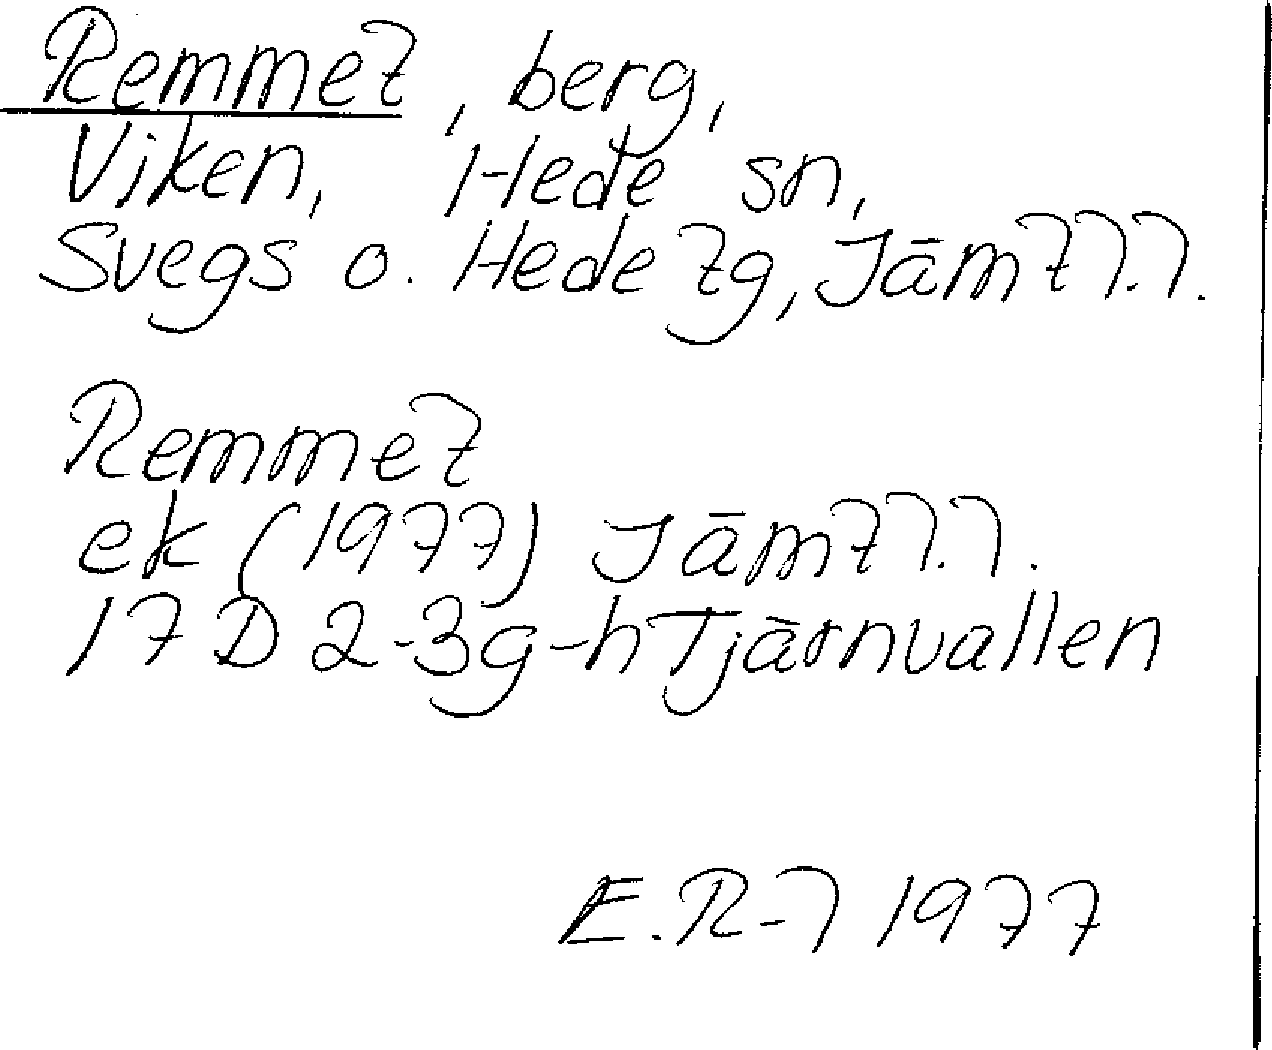 Remmet, berg,
Viken, Hede sn,
Svegs o. Hede tg, Jämtl.l.
Remmet
ek (1977) Jämtl.l.
17 D 2-3g-h Tjärnvallen
1977